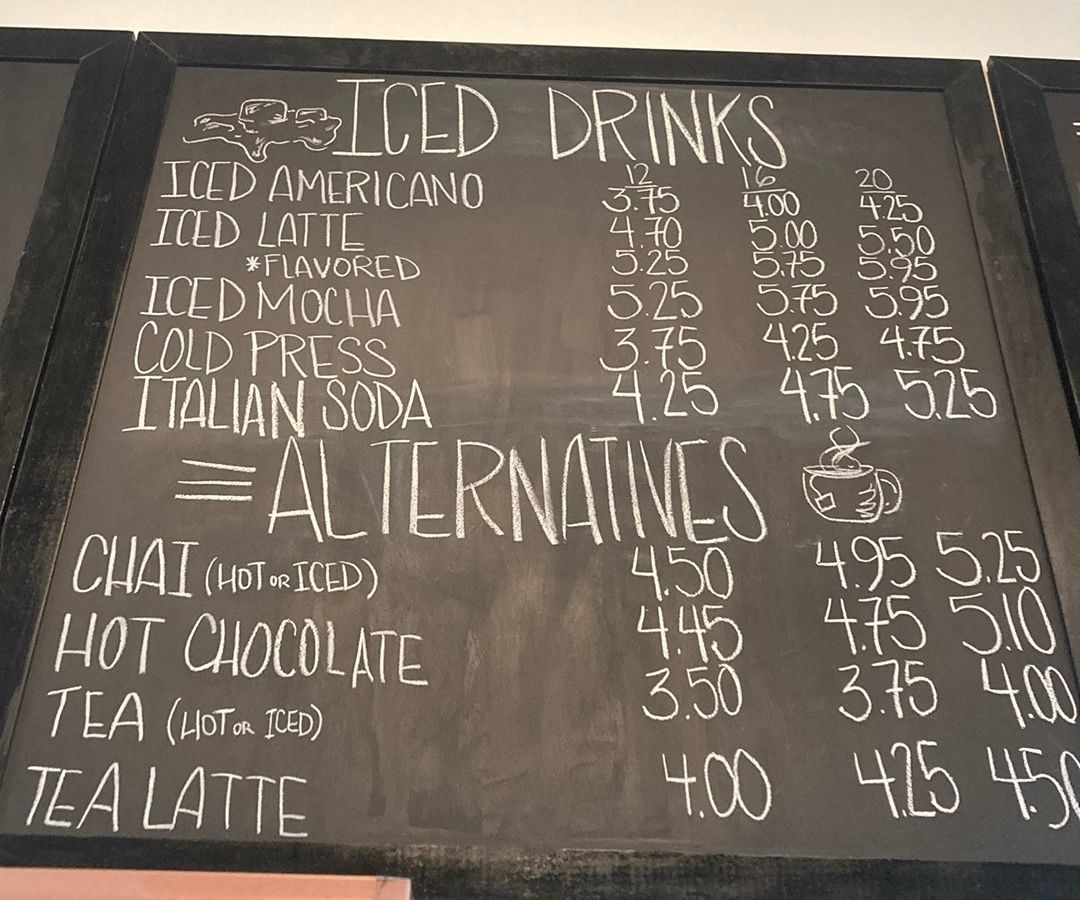 ICED DRINKS
12 16 20
ICED AMERICANO 3.75 4.00 4.25
ICED LATTE 4.70 5.00 5.50
*FLAVORED 5.25 5.75 5.95
ICED MOCHA 5.25 5.75 5.95
COLD PRESS 3.75 4.25 4.75
ITALIAN SODA 4.25 4.75 5.25
ALTERNATIVES
CHAI (HOT OR ICED) 4.50 4.95 5.25
HOT CHOCOLATE 4.45 4.75 5.10
TEA (HOT OR ICED) 3.50 3.75 4.00
TEA LATTE 4.00 4.25 4.50